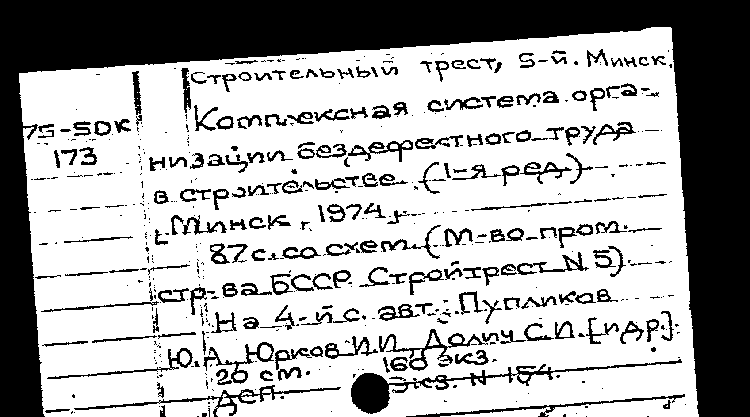 Строительный трест, 5-й. Минск.
75-5DK
173
Комплексная система орга-
низации бездефектного труда
в строительстве (1-я ред.)
[Минск, 1974].
87 с. со схем. (М-во пром.
стр-ва БССР. Стройтрест N 5).
На 4-й с. авт.: Пупликов
Ю.А., Юрков И.И., Долич С.И. [и др.].
20 см. 160 экз.
Деп. Экз. N 154.